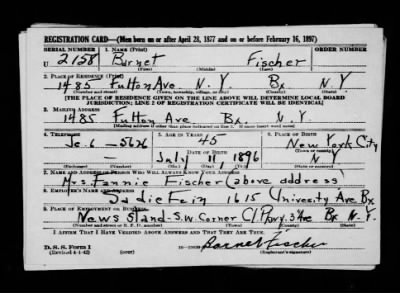 REGISTRATION CARD—(Men born on or after April 28, 1877 and on or before February 16, 1897)
SERIAL NUMBER 1. NAME (Print) ORDER NUMBER
U 2158 Burnet Fischer
(First) (Middle) (Last)
2. PLACE OF RESIDENCE (Print)
1485 Fulton Ave N.Y. Bx N.Y
(Number and street) (Town, township, village, or city) (County) (State)
[THE PLACE OF RESIDENCE GIVEN ON THE LINE ABOVE WILL DETERMINE LOCAL BOARD
JURISDICTION; LINE 2 OF REGISTRATION CERTIFICATE WILL BE IDENTICAL]
3. MAILING ADDRESS
1485 Fulton Ave Bx. N.Y.
[Mailing address if other than place indicated on line 2. If same insert word same]
4. TELEPHONE 5. AGE IN YEARS 6. PLACE OF BIRTH
Je. 6-5676 45 New York City
DATE OF BIRTH (Town or county)
July 11 1896 N.Y
(Exchange) (Number) (Mo.) (Day) (Yr.) (State or country)
7. NAME AND ADDRESS OF PERSON WHO WILL ALWAYS KNOW YOUR ADDRESS
Mrs. Fannie Fischer (above address)
8. EMPLOYER'S NAME AND ADDRESS
Sadie Fein 1615 University Ave Bx
9. PLACE OF EMPLOYMENT OR BUSINESS
News Stand-S.W. Corner Cl. Pkwy. 3rd Ave Bx N.Y.
(Number and street or R. F. D. number) (Town) (County) (State)
I AFFIRM THAT I HAVE VERIFIED ABOVE ANSWERS AND THAT THEY ARE TRUE.
D. S. S. Form 1
(Revised 4-1-42) Barnet Fischer
(Registrant's signature)